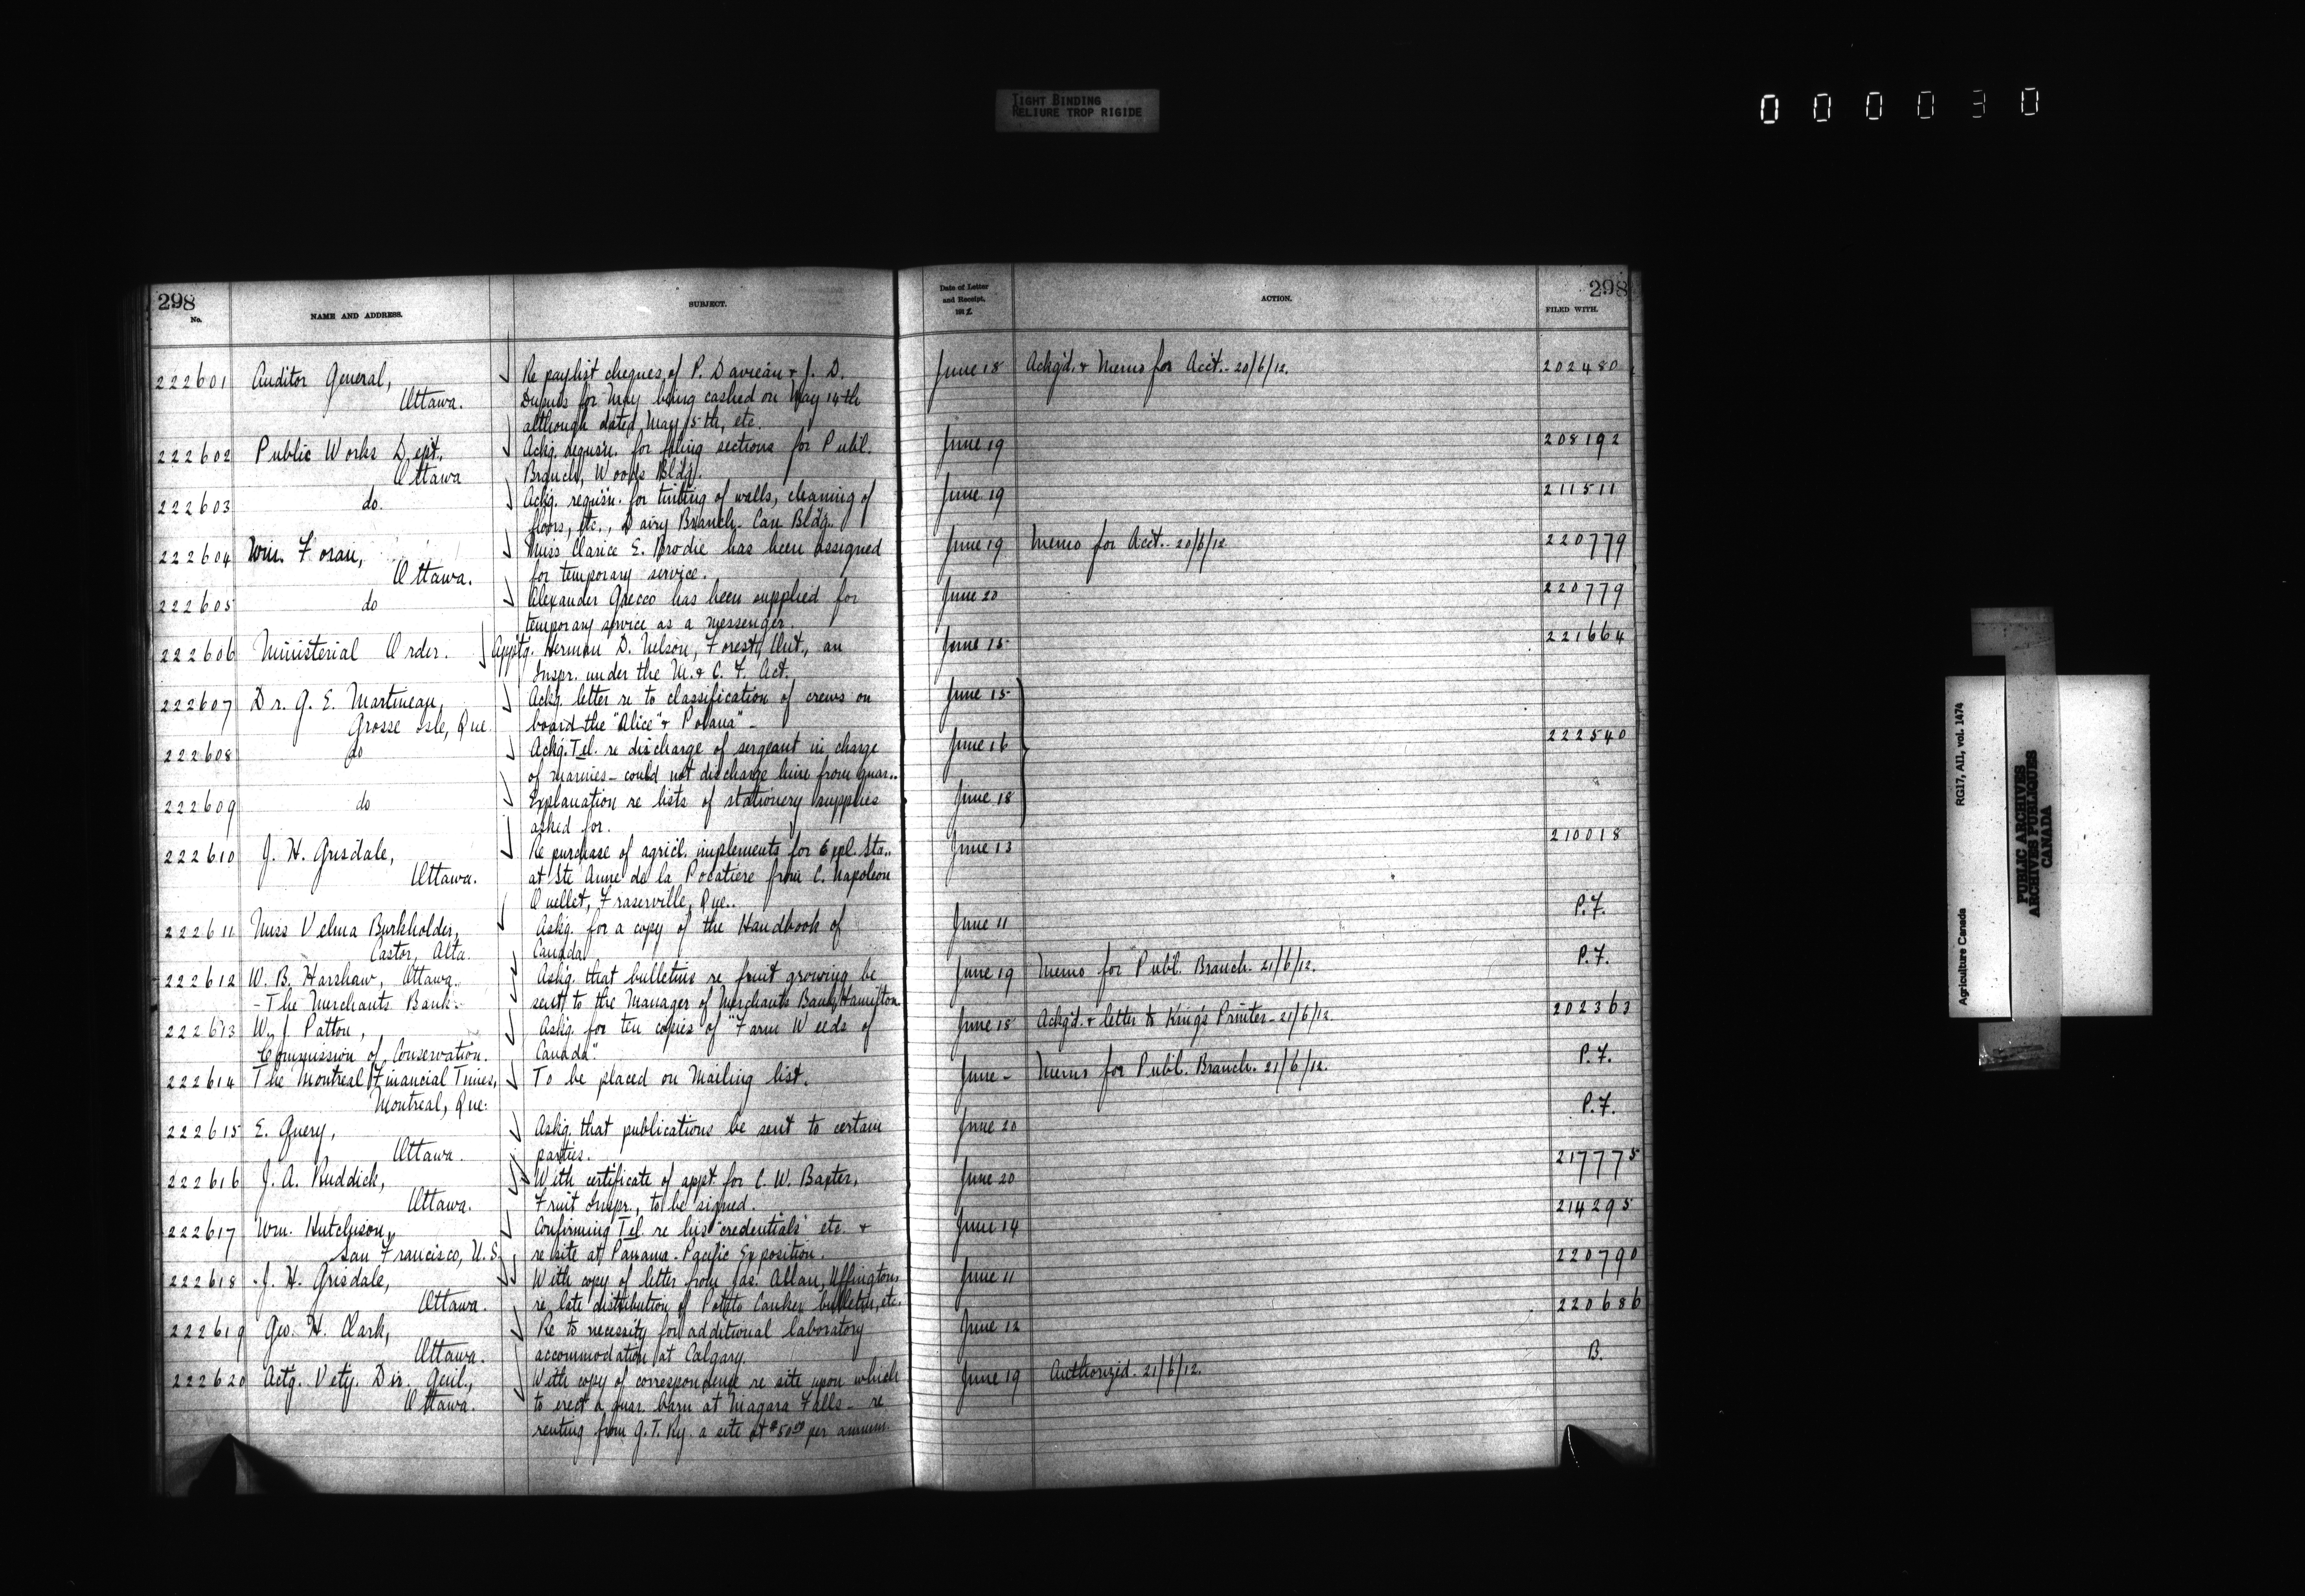 TIGHT BINDING
RELIURE TROP RIGIDE
000030
298
No.
NAME AND ADDRESS.
SUBJECT.
Date of Letter
and Receipt,
1912
ACTION.
298
FILED WITH.
222601 Auditor General, Re paylist cheques of P. Davieau & J. D. June 18 Ackg'd. & Memo for Acct. 20/6/12. 202480
Ottawa. Dupuis for May being cashed on May 14th
although dated May 15th, etc.
222602 Public Works Dept. Ackg. requis'n. for filing sections for Publ. June 19 208192
Ottawa Branch, Woods Bldg.
222603 do. Ackg. requis'n. for tinting of walls, cleaning of June 19 211511
floors, etc., Dairy Branch. Can. Bldg.
222604 Wm. Foran, Miss Clarice E. Brodie has been assigned June 19 Memo for Acct. 20/6/12 220779
Ottawa. for temporary service.
222605 do Alexander Grecco has been supplied for June 20 220779
temporary service as a messenger.
222606 Ministerial Order. Appt'g. Herman D. Nelson, Forest, Ont., an June 15 221664
Inspr. under the M. & C. F. Act.
222607 Dr. G. E. Martineau, Ackg. letter re to classification of crews on June 15
Grosse Isle, Que. board the "Alice" & Polana" -
222608 do Ackg. Tel. re discharge of sergeant in charge June 16 222540
of marines - could not discharge him from quar..
222609 do Explanation re lists of stationery supplies June 18
asked for.
222610 J. H. Grisdale, Re purchase of agricl. implements for Expl. Sta.. June 13 210018
Ottawa. at Ste Anne de la Pocatiere from C. Napoleon
Ouellet, Fraserville, Que..
222611 Miss Velma Burkholder, Askg. for a copy of the Handbook of June 11 P.F.
Castor, Alta. Canada
222612 W. B. Harshaw, Ottawa. Askg. that bulletins re fruit growing be June 19 Memo for Publ. Branch. 21/6/12. P.F.
- The Merchants Bank. sent to the Manager of Merchants Bank, Hamilton
222613 W. J. Patton, Askg. for ten copies of "Farm Weeds of June 18 Ackg'd. & letter to Kings Printer - 21/6/12. 202363
Commission of Conservation. Canada".
222614 The Montreal Financial Times, To be placed on Mailing list. June - Memo for Publ. Branch. 21/6/12. P.F.
Montreal, Que.
222615 E. Query, Askg. that publications be sent to certain June 20 P.F.
Ottawa. parties.
222616 J. A. Ruddick, With certificate of appt for C. W. Baxter, June 20 217775
Ottawa. Fruit Inspr., to be signed.
222617 Wm. Hutchison, Confirming Tel. re his "credentials" etc. & June 14 214295
San Francisco, U.S. re site at Panama-Pacific Exposition.
222618 J. H. Grisdale, With copy of letter from Jas. Allan, Uffington June 11 220790
Ottawa. re late distribution of Potato Canker bulletin, etc.
222619 Geo. H. Clark, Re to necessity for additional laboratory June 12 220686
Ottawa. accommodation at Calgary.
222620 Actg. Vety. Dir. Genl., With copy of correspondence re site upon which June 19 Authorized. 21/6/12. B.
Ottawa. to erect a quar. barn at Niagara Falls - re
renting from G. T. Ry. a site at $50.00 per annum.
Agriculture Canada RG17, AII, vol. 1474
PUBLIC ARCHIVES
ARCHIVES PUBLIQUES
CANADA